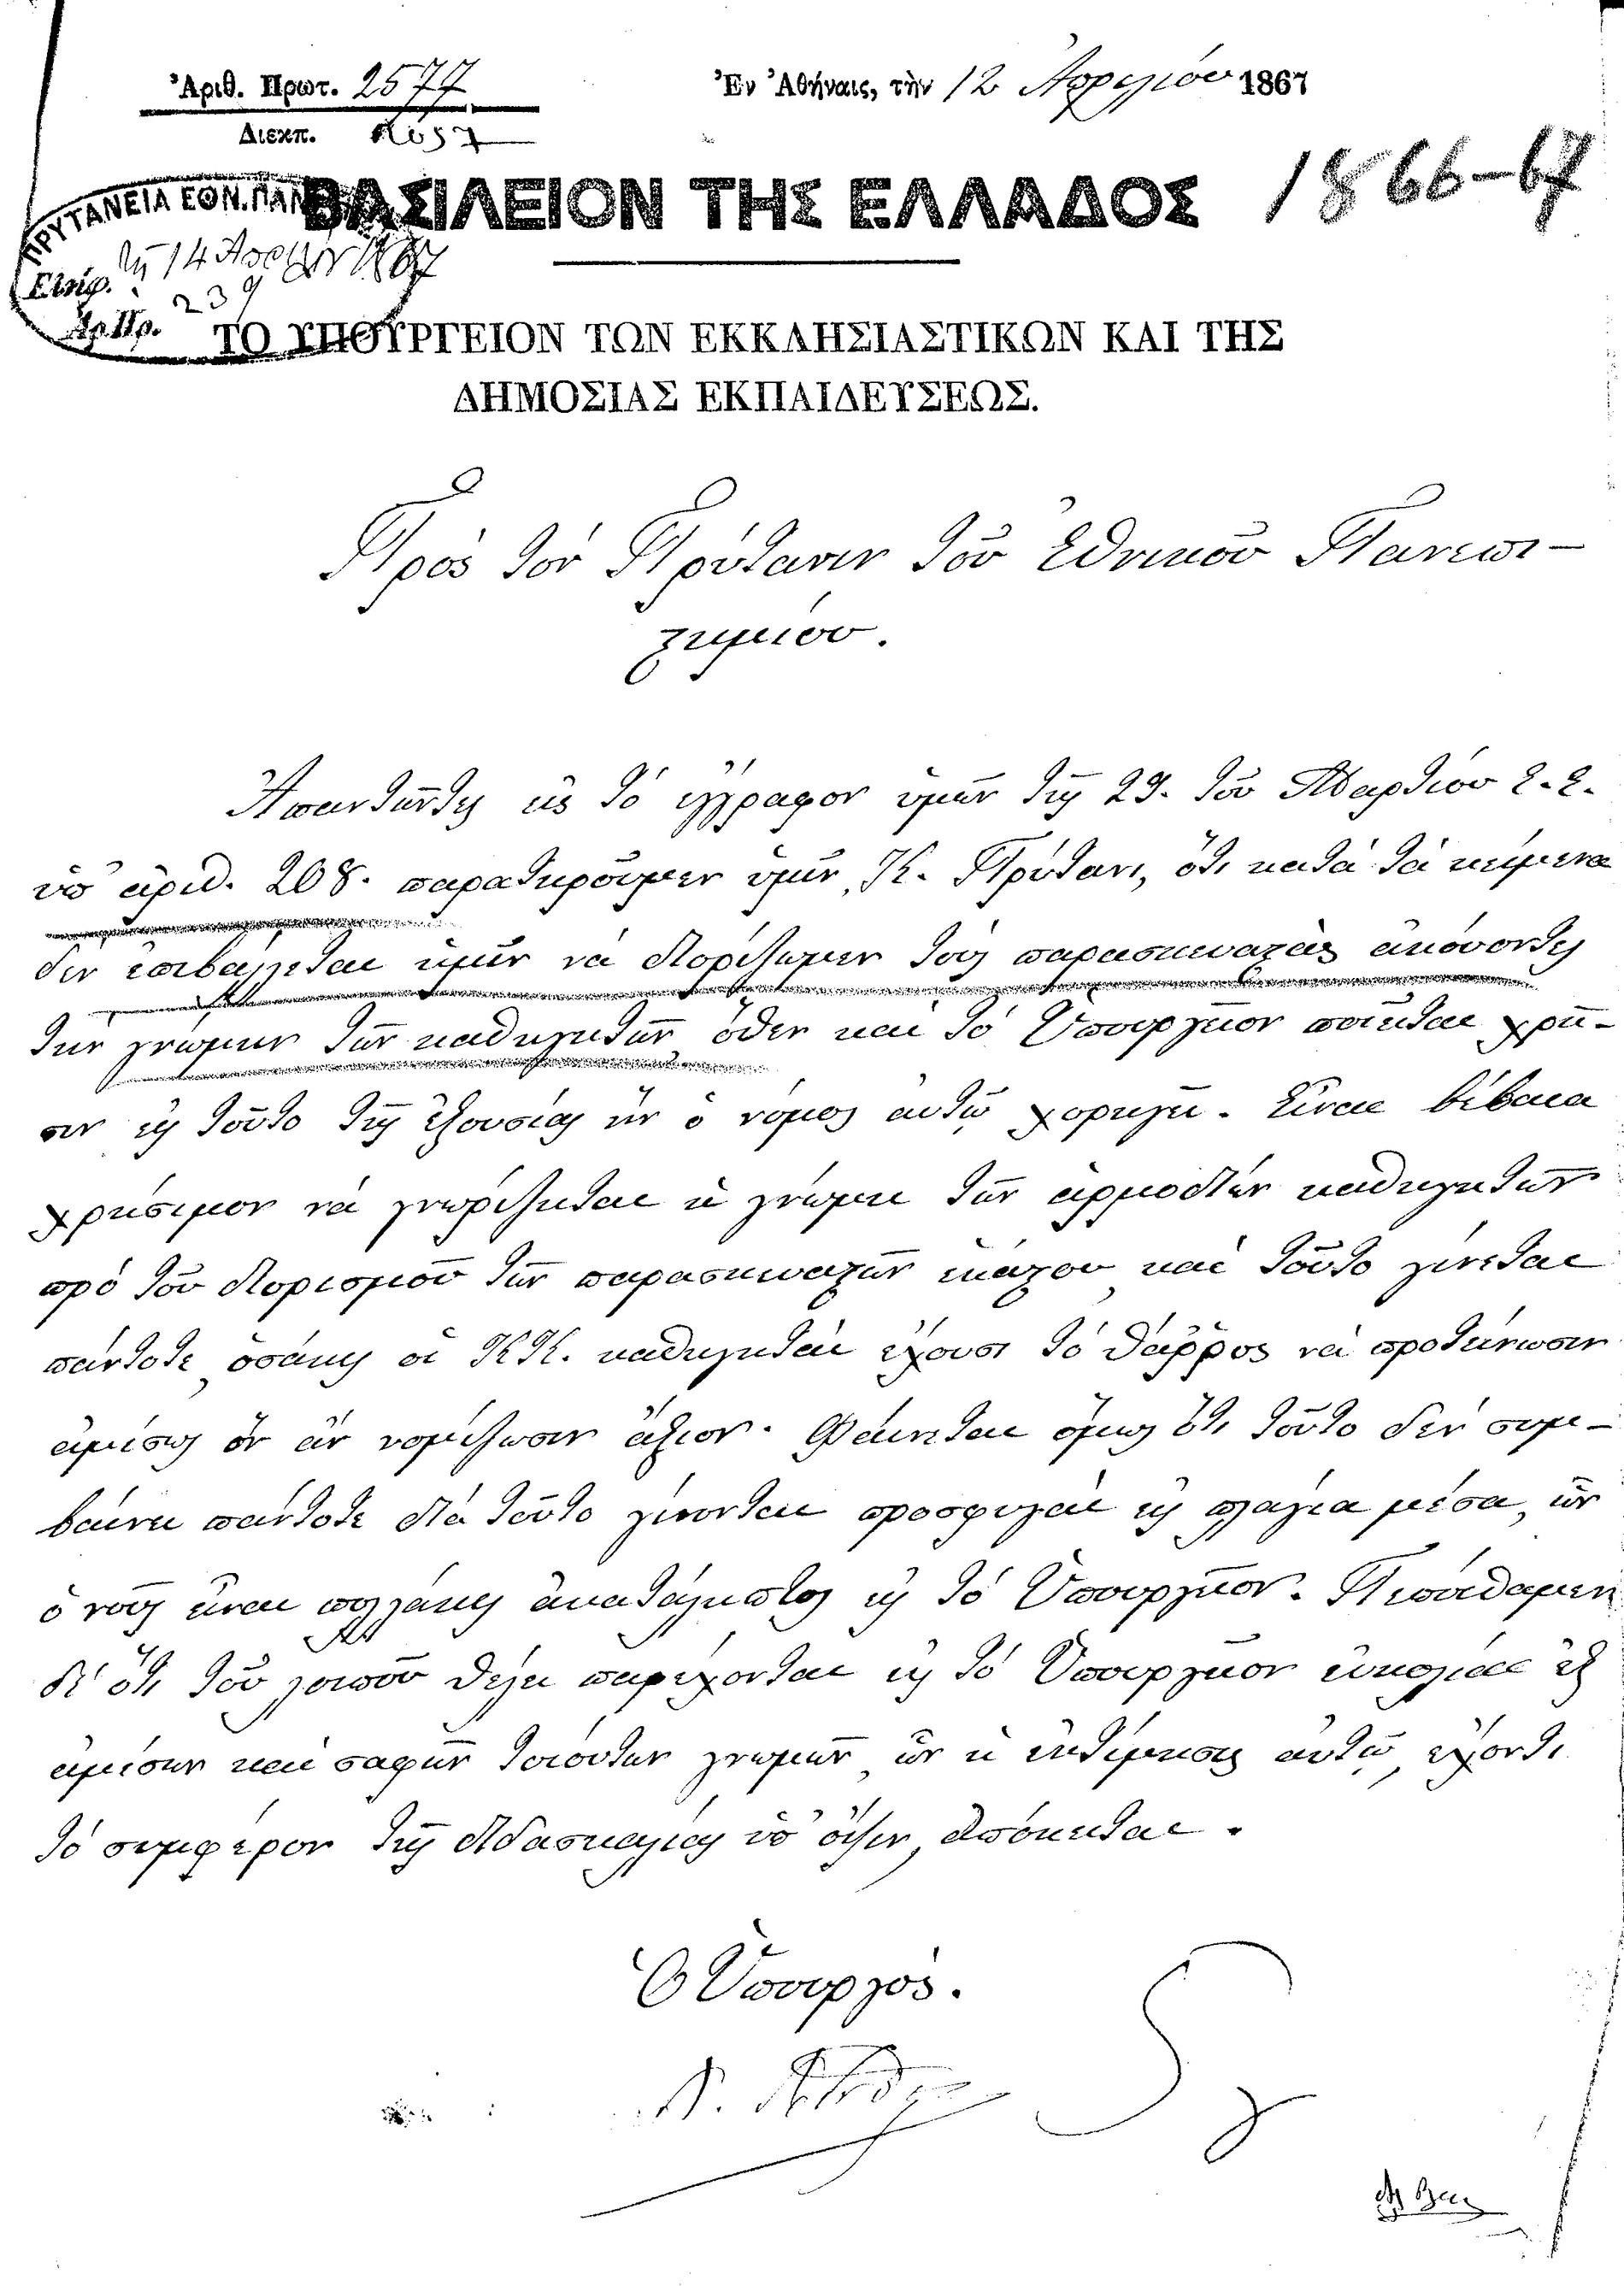 Ἀριθ. Πρωτ. 2577
Διεκπ.
Ἐν Ἀθήναις, τὴν 12 Ἀπριλίου 1867
1866-67
ΒΑΣΙΛΕΙΟΝ ΤΗΣ ΕΛΛΑΔΟΣ
ΠΡΥΤΑΝΕΙΑ ΕΘΝ. ΠΑΝ
Εἰσήχ. τῇ 14 Ἀπριλίου 1867
Ἀρ. Πρ. 239
ΤΟ ΥΠΟΥΡΓΕΙΟΝ ΤΩΝ ΕΚΚΛΗΣΙΑΣΤΙΚΩΝ ΚΑΙ ΤΗΣ
ΔΗΜΟΣΙΑΣ ΕΚΠΑΙΔΕΥΣΕΩΣ.
Πρὸς τὸν Πρύτανιν τοῦ Ἐθνικοῦ Πανεπι-
στημίου.
Ἀπαντῶντες εἰς τὸ ἔγγραφον ὑμῶν τῆς 29. τοῦ Μαρτίου ἐ.ἔ.
ὑπ' ἀριθ. 208. παρατηροῦμεν ὑμῖν, Κ. Πρύτανι, ὅτι κατὰ τὰ κείμενα
δὲν ἐπιβάλλεται ἡμῖν νὰ διορίζωμεν τοὺς παρασκευαστὰς ἀκούοντες
τὴν γνώμην τῶν καθηγητῶν ὅθεν καὶ τὸ Ὑπουργεῖον ποιεῖται χρῆ-
σιν εἰς τοῦτο τῆς ἐξουσίας ἣν ὁ νόμος αὐτῷ χορηγεῖ. Εἶναι βέβαια
χρήσιμον νὰ γνωρίζηται ἡ γνώμη τῶν ἁρμοδίων καθηγητῶν
πρὸ τοῦ διορισμοῦ τῶν παρασκευαστῶν ἑκάστου καὶ τοῦτο γίνεται
πάντοτε, ὁσάκις οἱ ΚΚ. καθηγηταὶ ἔχουσι τὸ θάῤῥος νὰ προτείνωσιν
ἀμέσως ὃν ἂν νομίζωσιν ἄξιον. Φαίνεται ὅμως ὅτι τοῦτο δὲν συμ-
βαίνει πάντοτε διὰ τοῦτο γίνονται προσφυγαὶ εἰς πλάγια μέσα, ὧν
ὁ νοῦς εἶναι πολλάκις ἀκατάληπτος εἰς τὸ Ὑπουργεῖον. Πεποίθαμεν
δὲ ὅτι τοῦ λοιποῦ θέλει παρέχονται εἰς τὸ Ὑπουργεῖον εὐκολίαι ἐξ
ἀμέσων καὶ σαφῶν τοιούτων γνωμῶν, ὧν ἡ ἐκτίμησις αὐτῷ, ἔχοντι
τὸ συμφέρον τῆς διδασκαλίας ὑπ' ὄψιν, ἀπόκειται.
Ὁ Ὑπουργός.